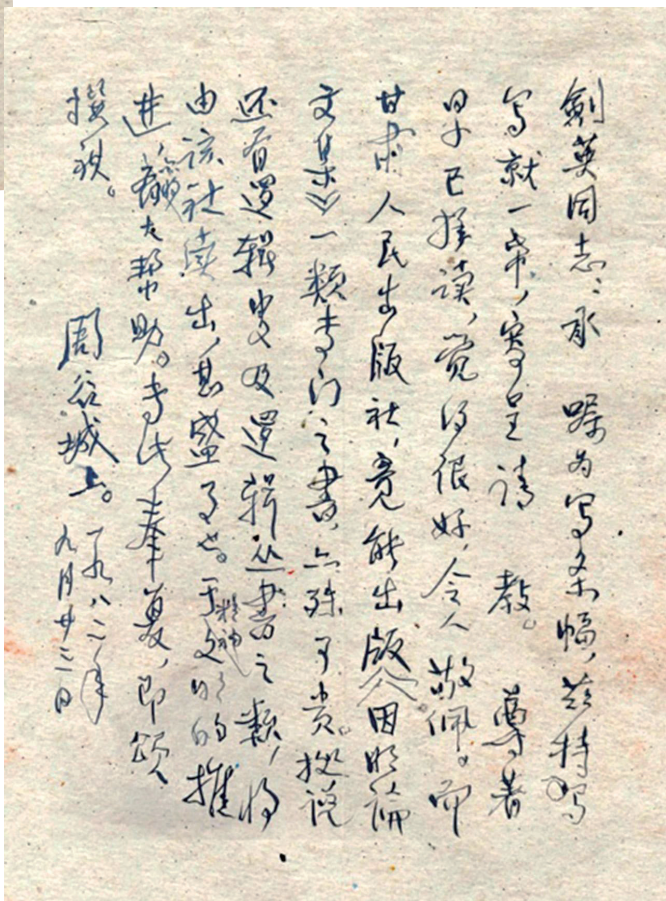 劍英同志：承 嘱为写条幅，兹特写
写就一帋，寄呈请 教。 尊著
早已拜读，觉得很好，令人敬佩。而
甘肃人民出版社，竟能出版《因明论
文集》一类专门之书，亦殊可贵。据说
还有逻辑史及逻辑丛书之类，将
由该社续出，甚盛事也。于精神文明的推
进，献大帮助。专此奉复，即颂
撰祺。
周谷城上。一九八二年
九月廿三日